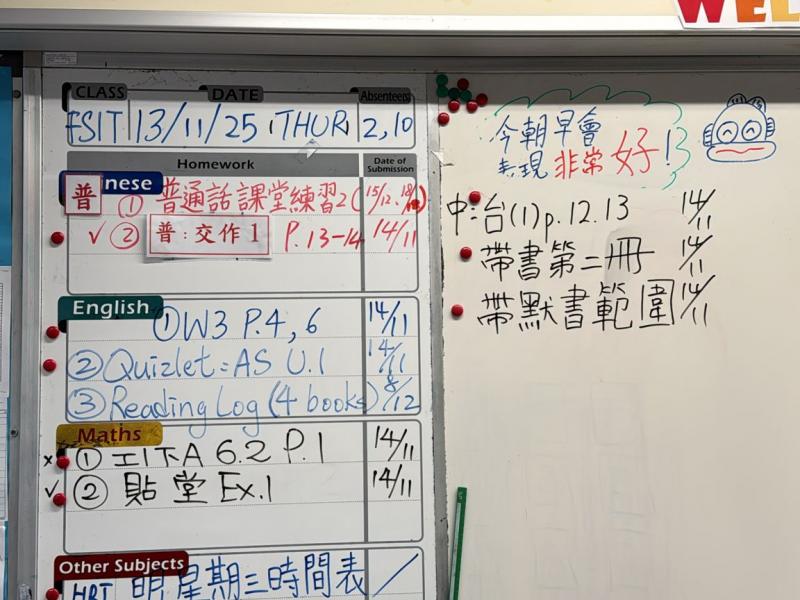 WEL
CLASS DATE Absentees
13/11/25 (THUR) 2,10
Homework Date of Submission
普 nese
① 普通話課堂練習2 (15/12
✓ ② 普:交作1 P.13-14 14/11
English
①W3 P.4,6 14/11
② Quizlet: AS U.1 14/11
③ Reading Log (4 books) 8/12
Maths
x ① 工作A 6.2 P.1 14/11
✓ ② 貼堂 Ex.1 14/11
Other Subjects
明星期三時間表
今朝早會
表現非常好!
中:台(1)p.12.13 14/11
帶書第二冊 14/11
帶默書範圍 14/11